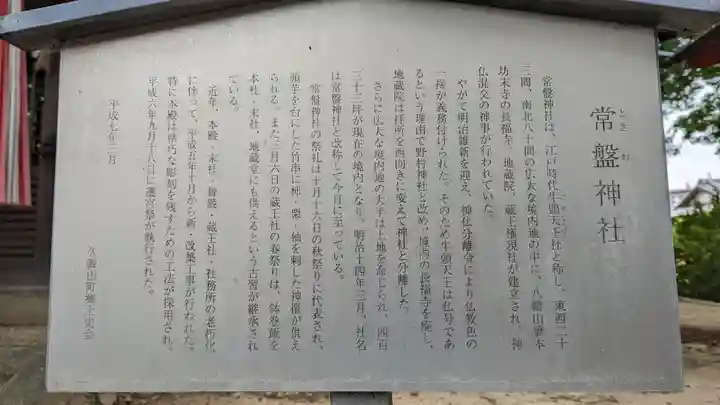 常盤神社
ときわ
常盤神社は、江戸時代牛頭天王社と称し、東西二十
三間、南北八十間の広大な境内地の中に、八幡山曽本
坊末寺の長福寺、地蔵院、蔵王権現社が建立され、神
仏混交の神事が行われていた。
やがて明治維新を迎え、神仏分離令により仏教色の
一掃が義務付けられた。そのため牛頭天王は仏号であ
るという理由で野村神社と改め、境内の長福寺を廃し、
地蔵院は拝所を西向きに変えて神社と分離した。
さらに広大な境内地の大半は上地を命じられ、四百
三十三坪が現在の境内となり、明治十四年三月、社名
は常盤神社と改称して今日に至っている。
常盤神社の祭礼は十月十六日の秋祭りに代表され、
頭芋を台にした竹串に柿・栗・柚を刺した神饌が供え
られる。また三月六日の蔵王社の春祭りは、鉢巻飯を
本社・末社・地蔵堂にも供えるという古習が継承され
ている。
近年、本殿・末社・舞殿・蔵王社・社務所の老朽化
に伴って、平成五年十月から新・改築工事が行われた。
特に本殿は精巧な彫刻を残すための工法が採用され、
平成六年九月十八日に遷宮祭が執行された。
平成七年三月
久御山町郷土史会